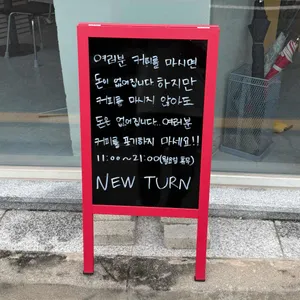 여러분 커피를 마시면
돈이 없어집니다 하지만
커피를 마시지 않아도
돈은 없어집니다.. 여러분
커피를 포기하지 마세요!!
11:00~21:00(월요일 휴무)
NEW TURN